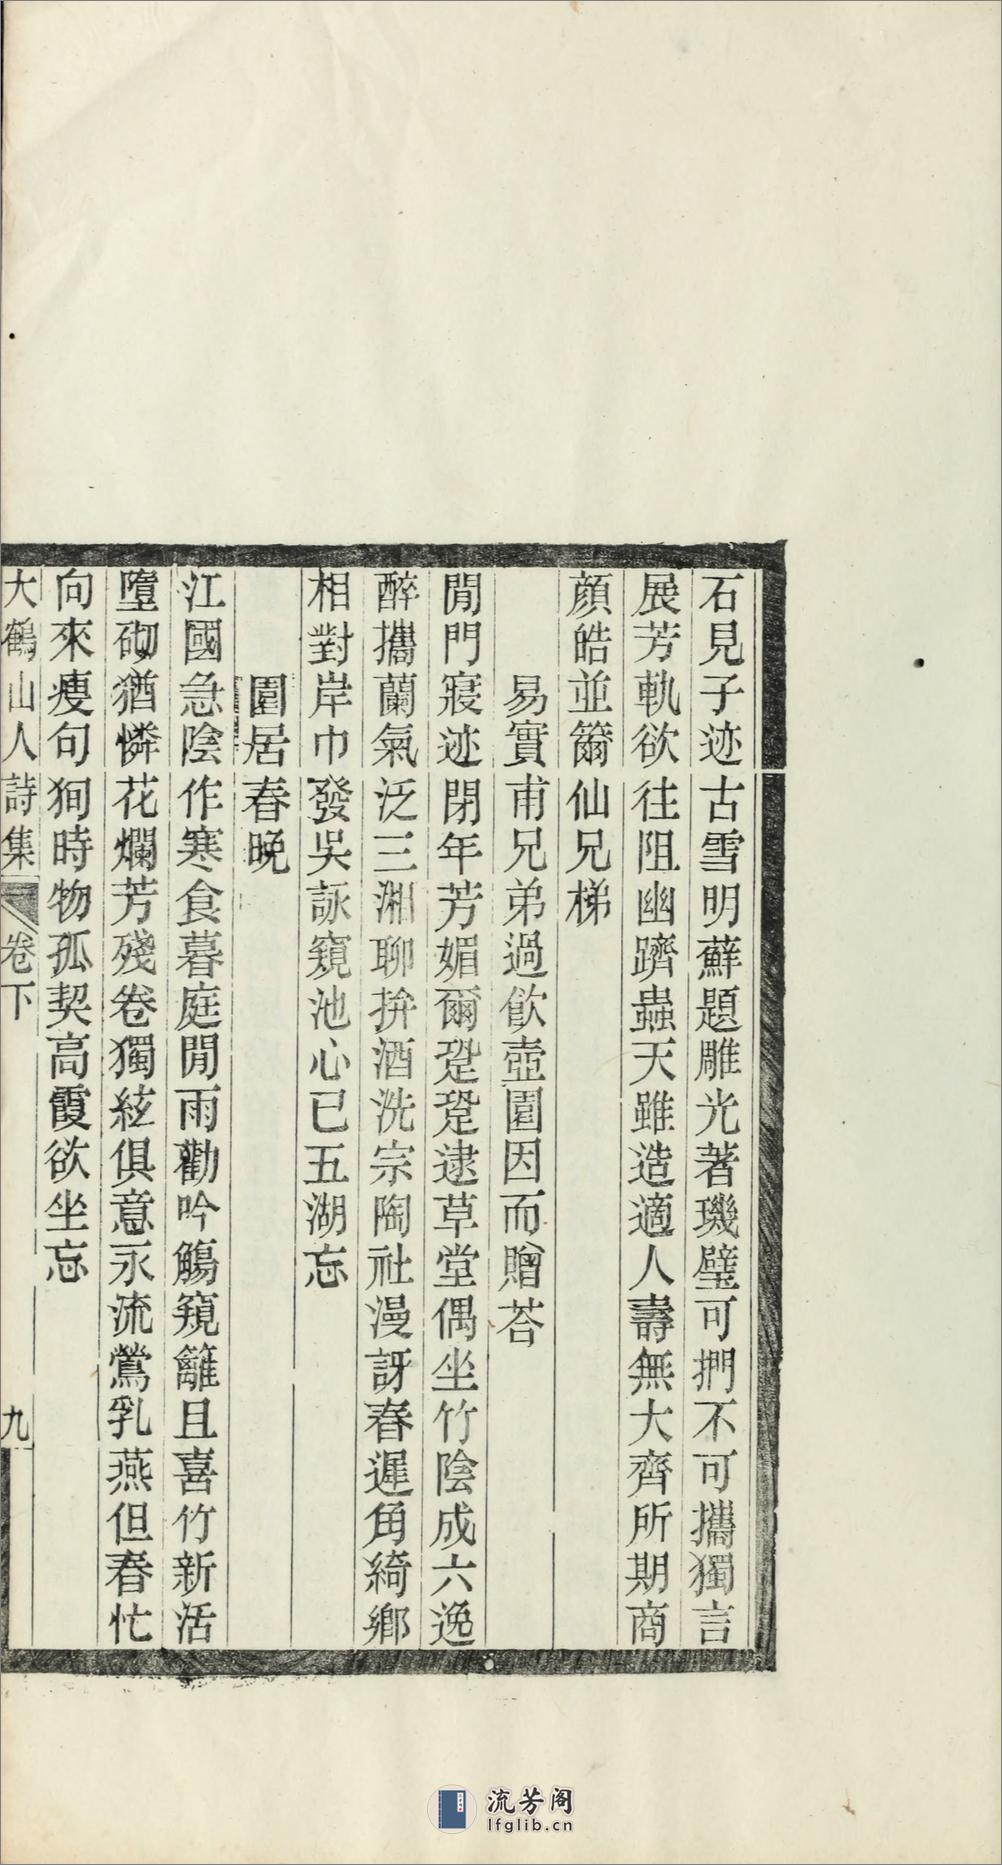 石見子迹古雪明蘇題雕光著璣璧可捫不可攜獨言
展芳軌欲往阻幽躋蟲天雖造適人壽無大齊所期商
顏皓並籋仙兄梯
易實甫兄弟過飲壺園因而贈荅
閒門寢迹閉年芳媚爾跫跫逮草堂偶坐竹陰成六逸
醉攜蘭氣泛三湘聊拚酒洗宗陶社漫訝春遲角綺鄉
相對岸巾發吳詠窺池心已五湖忘
園居春晚
江國急陰作寒食暮庭閒雨勸吟觴窺籬且喜竹新活
墮砌猶憐花爛芳殘卷獨絃俱意永流鶯乳燕但春忙
向來瘦句狥時物孤契高霞欲坐忘
大鶴山人詩集 卷下 九
流芳阁
lfglib.cn